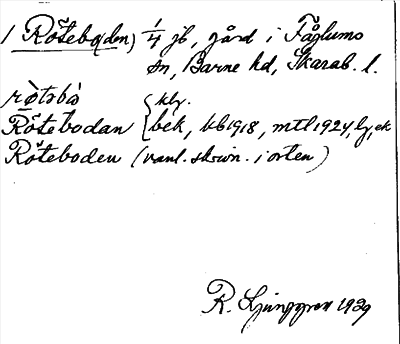 1 Röteboden) 1/4 jb, gård i Fåglums
sn, Barne hd, Skarab. l.
rø̀tɜbà { klg.
Rötebodan { bek, kb 1918, mtl 1924, lg, ek
Röteboden (vanl. skrivn. i orten)
R. Ljunggren 1929